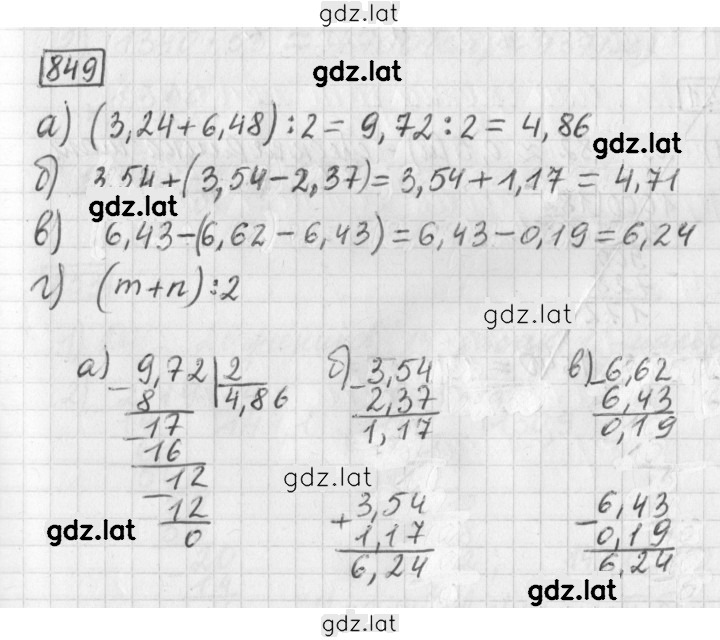 gdz.lat
849
gdz.lat
а) (3,24+6,48):2=9,72:2=4,86
gdz.lat
б) 3,54+(3,54-2,37)=3,54+1,17=4,71
gdz.lat
в) 6,43-(6,62-6,43)=6,43-0,19=6,24
г) (m+n):2
gdz.lat
а) 9,72 | 2
- 8 4,86
- 17
16
- 12
12
0
б) - 3,54
2,37
1,17
в) - 6,62
6,43
0,19
gdz.lat
+ 3,54
1,17
6,24
- 6,43
0,19
6,24
gdz.lat
gdz.lat
gdz.lat